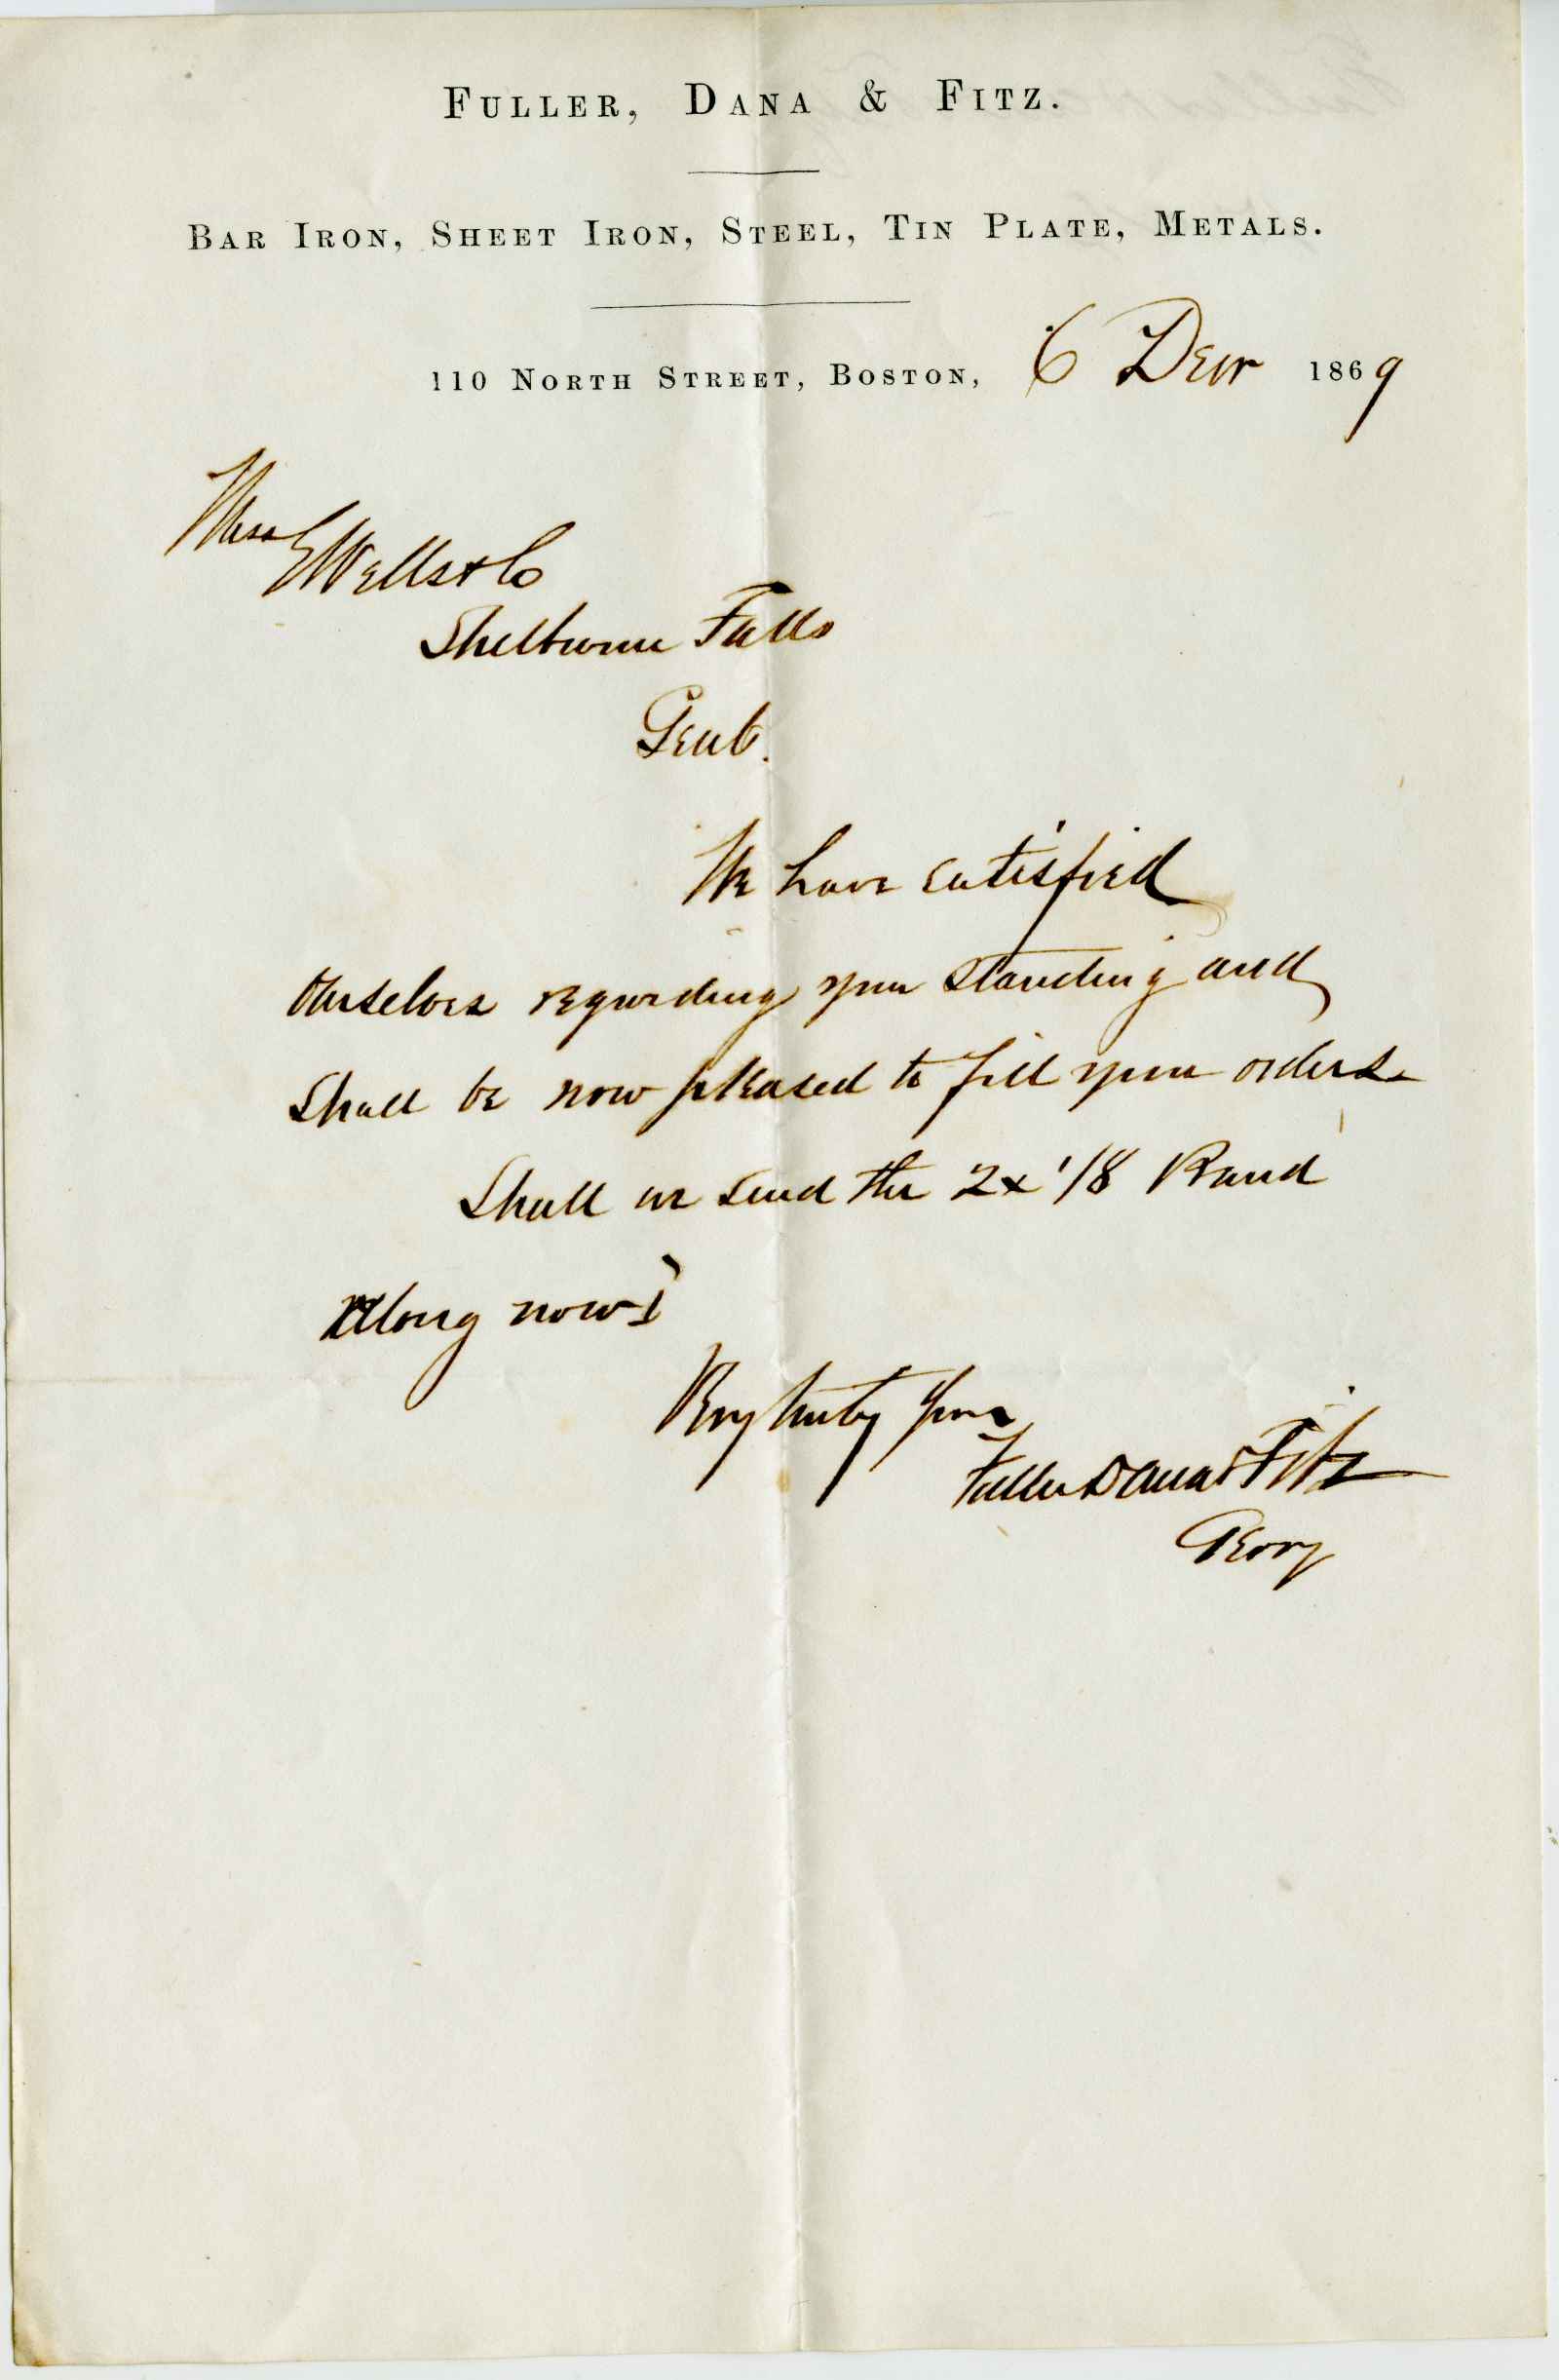 FULLER, DANA & FITZ.
BAR IRON, SHEET IRON, STEEL, TIN PLATE, METALS.
110 NORTH STREET, BOSTON, 6 Decr 1869
Mess Wells & Co
Shelburne Falls
Gents.
We have satisfied
Ourselves regarding your standing and
Shall be now pleased to fill your orders
Shall we send the 2 x 1/8 Band
Along now?
Very truly yours
Fuller Dana & Fitz